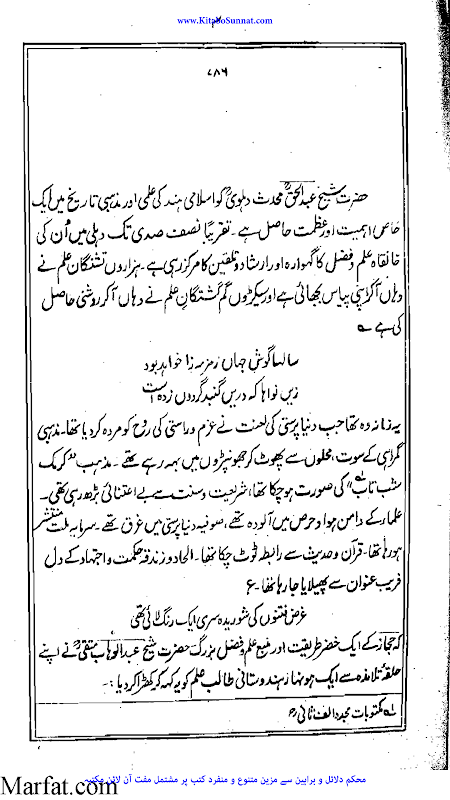 www.KitaboSunnat.com
۷۸۶
حضرت شیخ عبدالحقؒ محدث دہلویؒ کو اسلامی ہند کی علمی اور مذہبی تاریخ میں ایک
خاص اہمیت اور عظمت حاصل ہے۔ تقریباً نصف صدی تک دہلی میں اُن کی
خانقاہ علم و فضل کا گہوارہ اور ارشاد و تلقین کا مرکز رہی ہے۔ ہزاروں تشنگانِ علم نے
وہاں آکر اپنی پیاس بجھائی ہے اور سیکڑوں گم گشتگانِ علم نے وہاں آکر روشنی حاصل
کی ہے ؎
سالہا گوشِ جہاں زمزمہ زا خواہد بود
زیں نواہا کہ دریں گنبد گردوں زدہ است
یہ زمانہ وہ تھا جب دنیا پرستی کی لعنت نے عزم و راستی کی روح کو مردہ کر دیا تھا۔ مذہبی
گمراہی کے سوت، محلوں سے پھوٹ کر جھونپڑوں میں بہہ رہے تھے۔ مذہب "کرمک
شب تاب"ـلہ کی صورت ہو چکا تھا، شریعت و سنت سے بے اعتنائی بڑھ رہی تھی۔
علماء کے دامن ہوا و حرص میں آلودہ تھے، صوفیہ دنیا پرستی میں غرق تھے۔ سرمایہ ملت منتشر
ہو رہا تھا۔ قرآن و حدیث سے رابطہ ٹوٹ چکا تھا۔ الحاد و زندقہ حکمت و اجتہاد کے دل
فریب عنوان سے پھیلایا جا رہا تھا۔ ع
غرض فتنوں کی شوریدہ سری ایک رنگ لائی تھی
کہ حجاز کے ایک خضرِ طریقت اور منبع علم و فضل بزرگ حضرت شیخ عبدالوہاب متقیؒ نے اپنے
حلقۂ تلامذہ سے ایک ہونہار ہندوستانی طالب علم کو یہ کہہ کر کھڑا کر دیا :۔
لہ مکتوبات مجدد الف ثانیؒ
محکم دلائل و براہین سے مزین متنوع و منفرد کتب پر مشتمل مفت آن لائن مکتبہ
Marfat.com